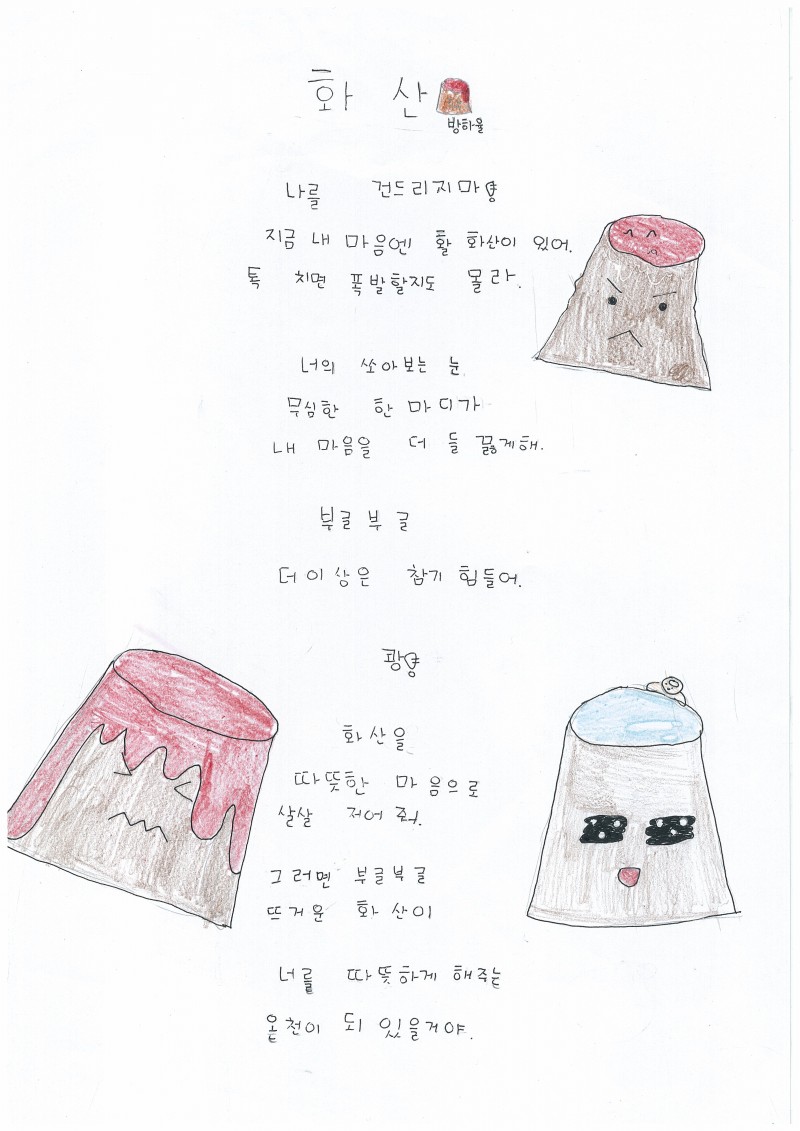 화 산
방하율
나를 건드리지마
지금 내 마음엔 활 화산이 있어.
톡 치면 폭발할지도 몰라.
너의 쏘아보는 눈
무심한 한 마디가
내 마음을 더 들 끓게해.
부글 부글
더이상은 참기 힘들어.
쾅
화산을
따뜻한 마음으로
살살 저어 줘.
그러면 부글부글
뜨거운 화산이
너를 따뜻하게 해주는
온천이 되 있을거야.